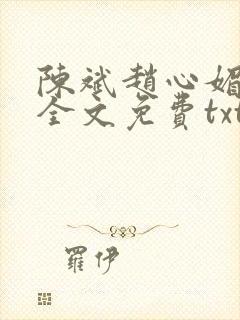 陳斌趙心媚
全文免費txt
羅伊